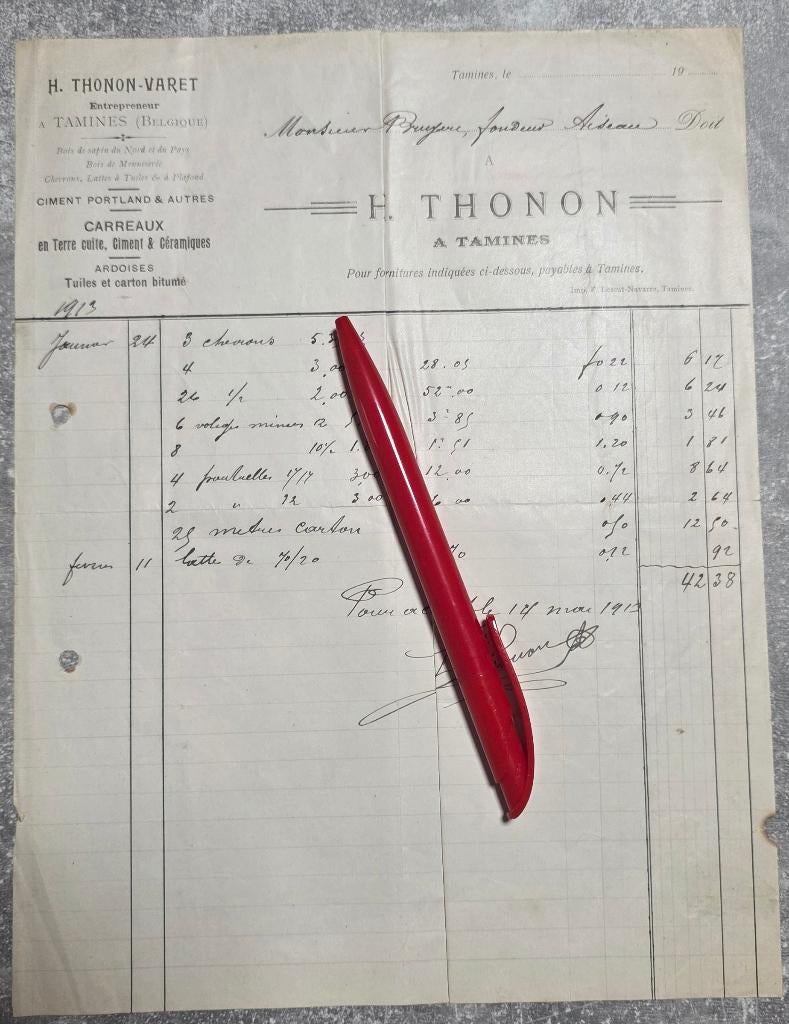 H. THONON-VARET
Entrepreneur
A TAMINES (BELGIQUE)
Bois de sapin du Nord et du Pays
Bois de Menuiserie
Chevrons, Lattes à Tuiles & à Plafond
CIMENT PORTLAND & AUTRES
CARREAUX
en Terre cuite, Ciment & Céramiques
ARDOISES
Tuiles et carton bitumé
Tamines, le 19
Monsieur Bruyere, fondeur Aiseau Doit
A
H. THONON
A TAMINES
Pour fornitures indiquées ci-dessous, payables à Tamines.
Tamines.
1913
Janvier 24 3 chevrons
4 3,00 28.05 fo 22 6 17
26 1/2 2,00 52.00 0 12 6 24
6 3.85 0.90 3 46
8 10% 1.51 1.20 1 81
4 17/17 3,00 12.00 0.72 8 64
2 " 12 3 00 6 00 .44 2 64
25 metres carton 050 12 50
fevrier 11 latte de 70/20 70 92
42 38
Pour le 14 mai 1913